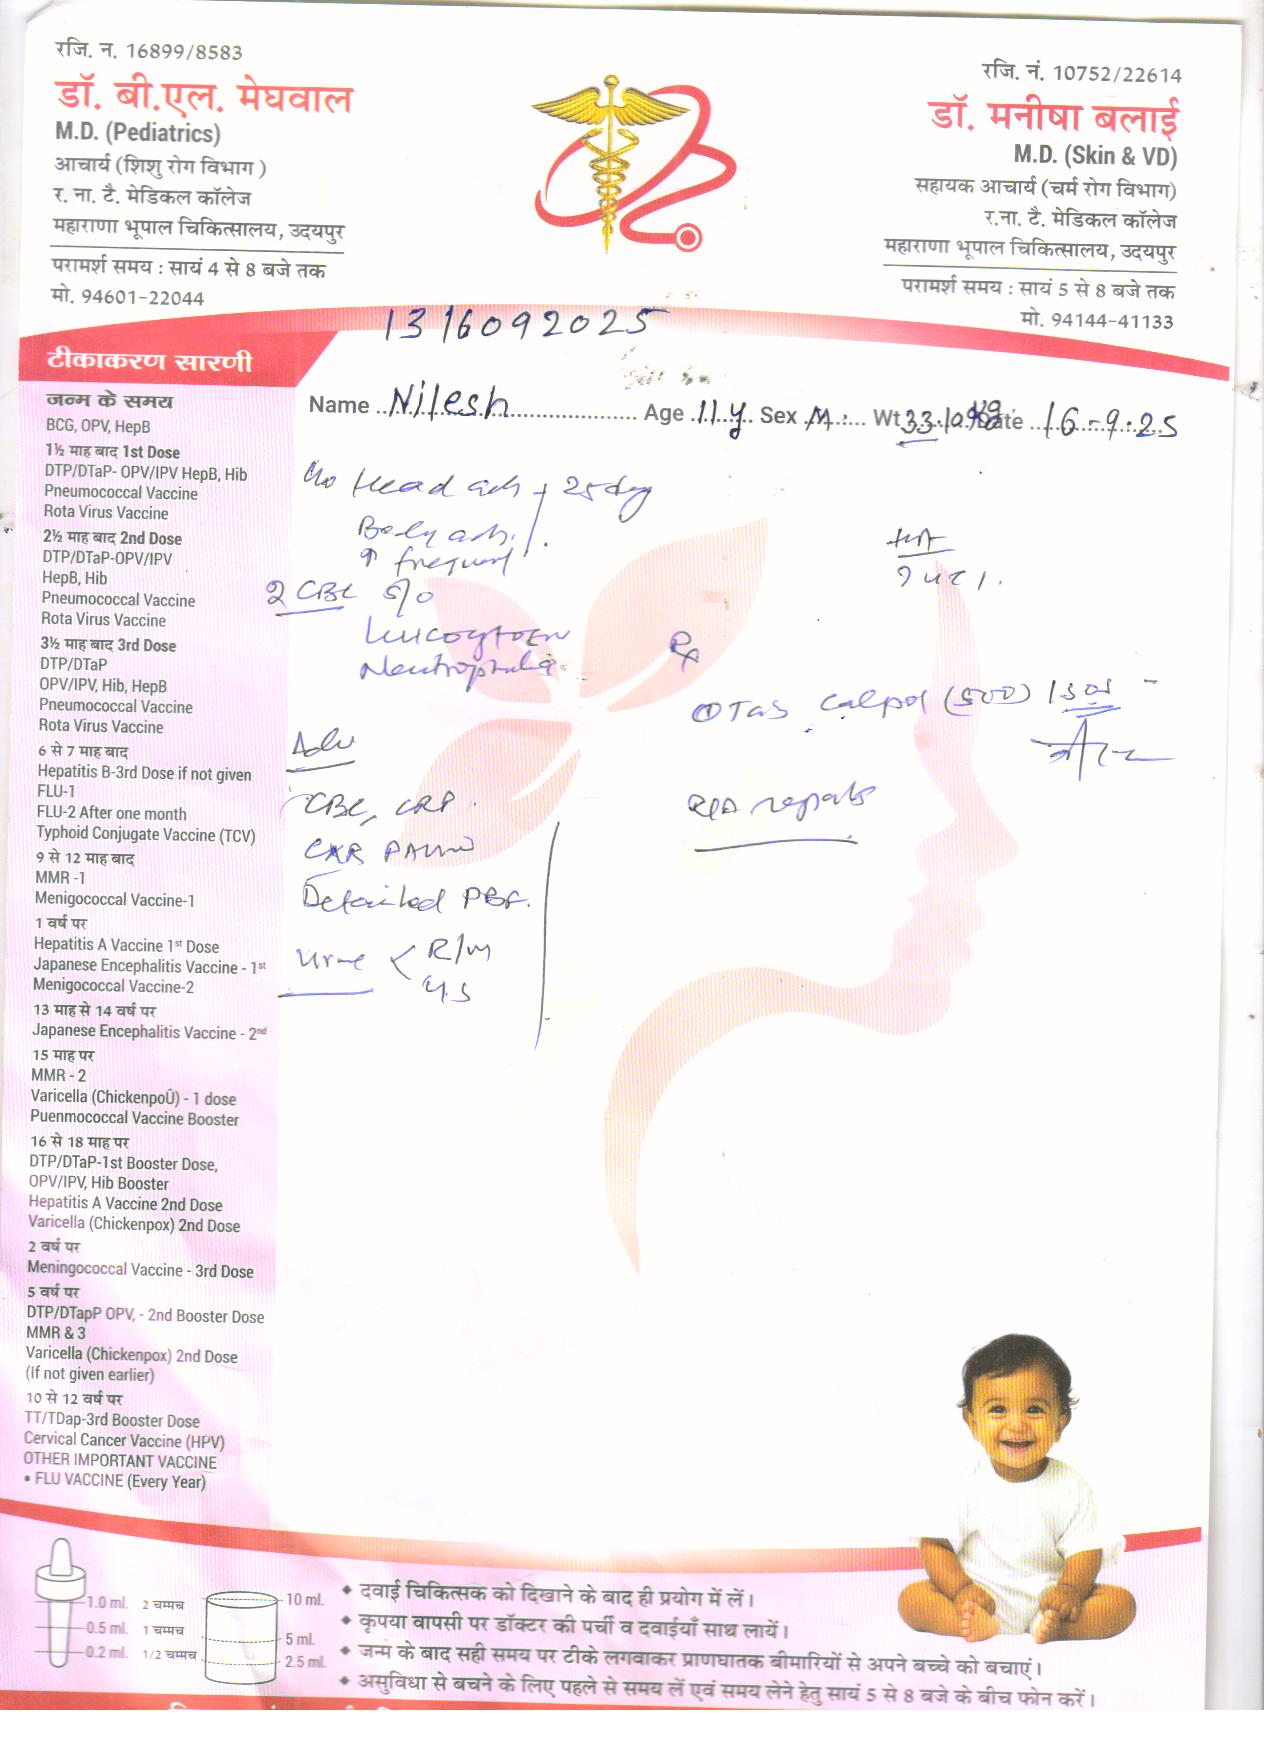 रजि. न. 16899/8583
डॉ. बी.एल. मेघवाल
M.D. (Pediatrics)
आचार्य (शिशु रोग विभाग )
र. ना. टै. मेडिकल कॉलेज
महाराणा भूपाल चिकित्सालय, उदयपुर
परामर्श समय : सायं 4 से 8 बजे तक
मो. 94601-22044
रजि. नं. 10752/22614
डॉ. मनीषा बलाई
M.D. (Skin & VD)
सहायक आचार्य (चर्म रोग विभाग)
र.ना. टै. मेडिकल कॉलेज
महाराणा भूपाल चिकित्सालय, उदयपुर
परामर्श समय : सायं 5 से 8 बजे तक
मो. 94144-41133
1316092025
Name Nilesh Age 11y Sex M. Wt 33.10kg Date 16-9-25
टीकाकरण सारणी
जन्म के समय
BCG, OPV, HepB
1½ माह बाद 1st Dose
DTP/DTaP- OPV/IPV HepB, Hib
Pneumococcal Vaccine
Rota Virus Vaccine
2½ माह बाद 2nd Dose
DTP/DTaP-OPV/IPV
HepB, Hib
Pneumococcal Vaccine
Rota Virus Vaccine
3½ माह बाद 3rd Dose
DTP/DTaP
OPV/IPV, Hib, HepB
Pneumococcal Vaccine
Rota Virus Vaccine
6 से 7 माह बाद
Hepatitis B-3rd Dose if not given
FLU-1
FLU-2 After one month
Typhoid Conjugate Vaccine (TCV)
9 से 12 माह बाद
MMR -1
Menigococcal Vaccine-1
1 वर्ष पर
Hepatitis A Vaccine 1st Dose
Japanese Encephalitis Vaccine - 1st
Menigococcal Vaccine-2
13 माह से 14 वर्ष पर
Japanese Encephalitis Vaccine - 2nd
15 माह पर
MMR - 2
Varicella (ChickenpoÛ) - 1 dose
Puenmococcal Vaccine Booster
16 से 18 माह पर
DTP/DTaP-1st Booster Dose,
OPV/IPV, Hib Booster
Hepatitis A Vaccine 2nd Dose
Varicella (Chickenpox) 2nd Dose
2 वर्ष पर
Meningococcal Vaccine - 3rd Dose
5 वर्ष पर
DTP/DTapP OPV, - 2nd Booster Dose
MMR & 3
Varicella (Chickenpox) 2nd Dose
(If not given earlier)
10 से 12 वर्ष पर
TT/TDap-3rd Booster Dose
Cervical Cancer Vaccine (HPV)
OTHER IMPORTANT VACCINE
• FLU VACCINE (Every Year)
Head ach
Body ach
↑ frequent
CBC S/O
Leucocytosis
Neutrophilia
Adv
CBC, CRP
CXR PA view
Detailed PBF.
Urine < R/M
Rx
① Tab Calpol (500) 1 SOS
reports
1.0 ml. 2 चम्मच
0.5 ml. 1 चम्मच
0.2 ml. 1/2 चम्मच
10 ml.
5 ml.
2.5 ml.
♦ दवाई चिकित्सक को दिखाने के बाद ही प्रयोग में लें।
♦ कृपया वापसी पर डॉक्टर की पर्ची व दवाईयाँ साथ लायें।
♦ जन्म के बाद सही समय पर टीके लगवाकर प्राणघातक बीमारियों से अपने बच्चे को बचाएं।
♦ असुविधा से बचने के लिए पहले से समय लें एवं समय लेने हेतु सायं 5 से 8 बजे के बीच फोन करें।